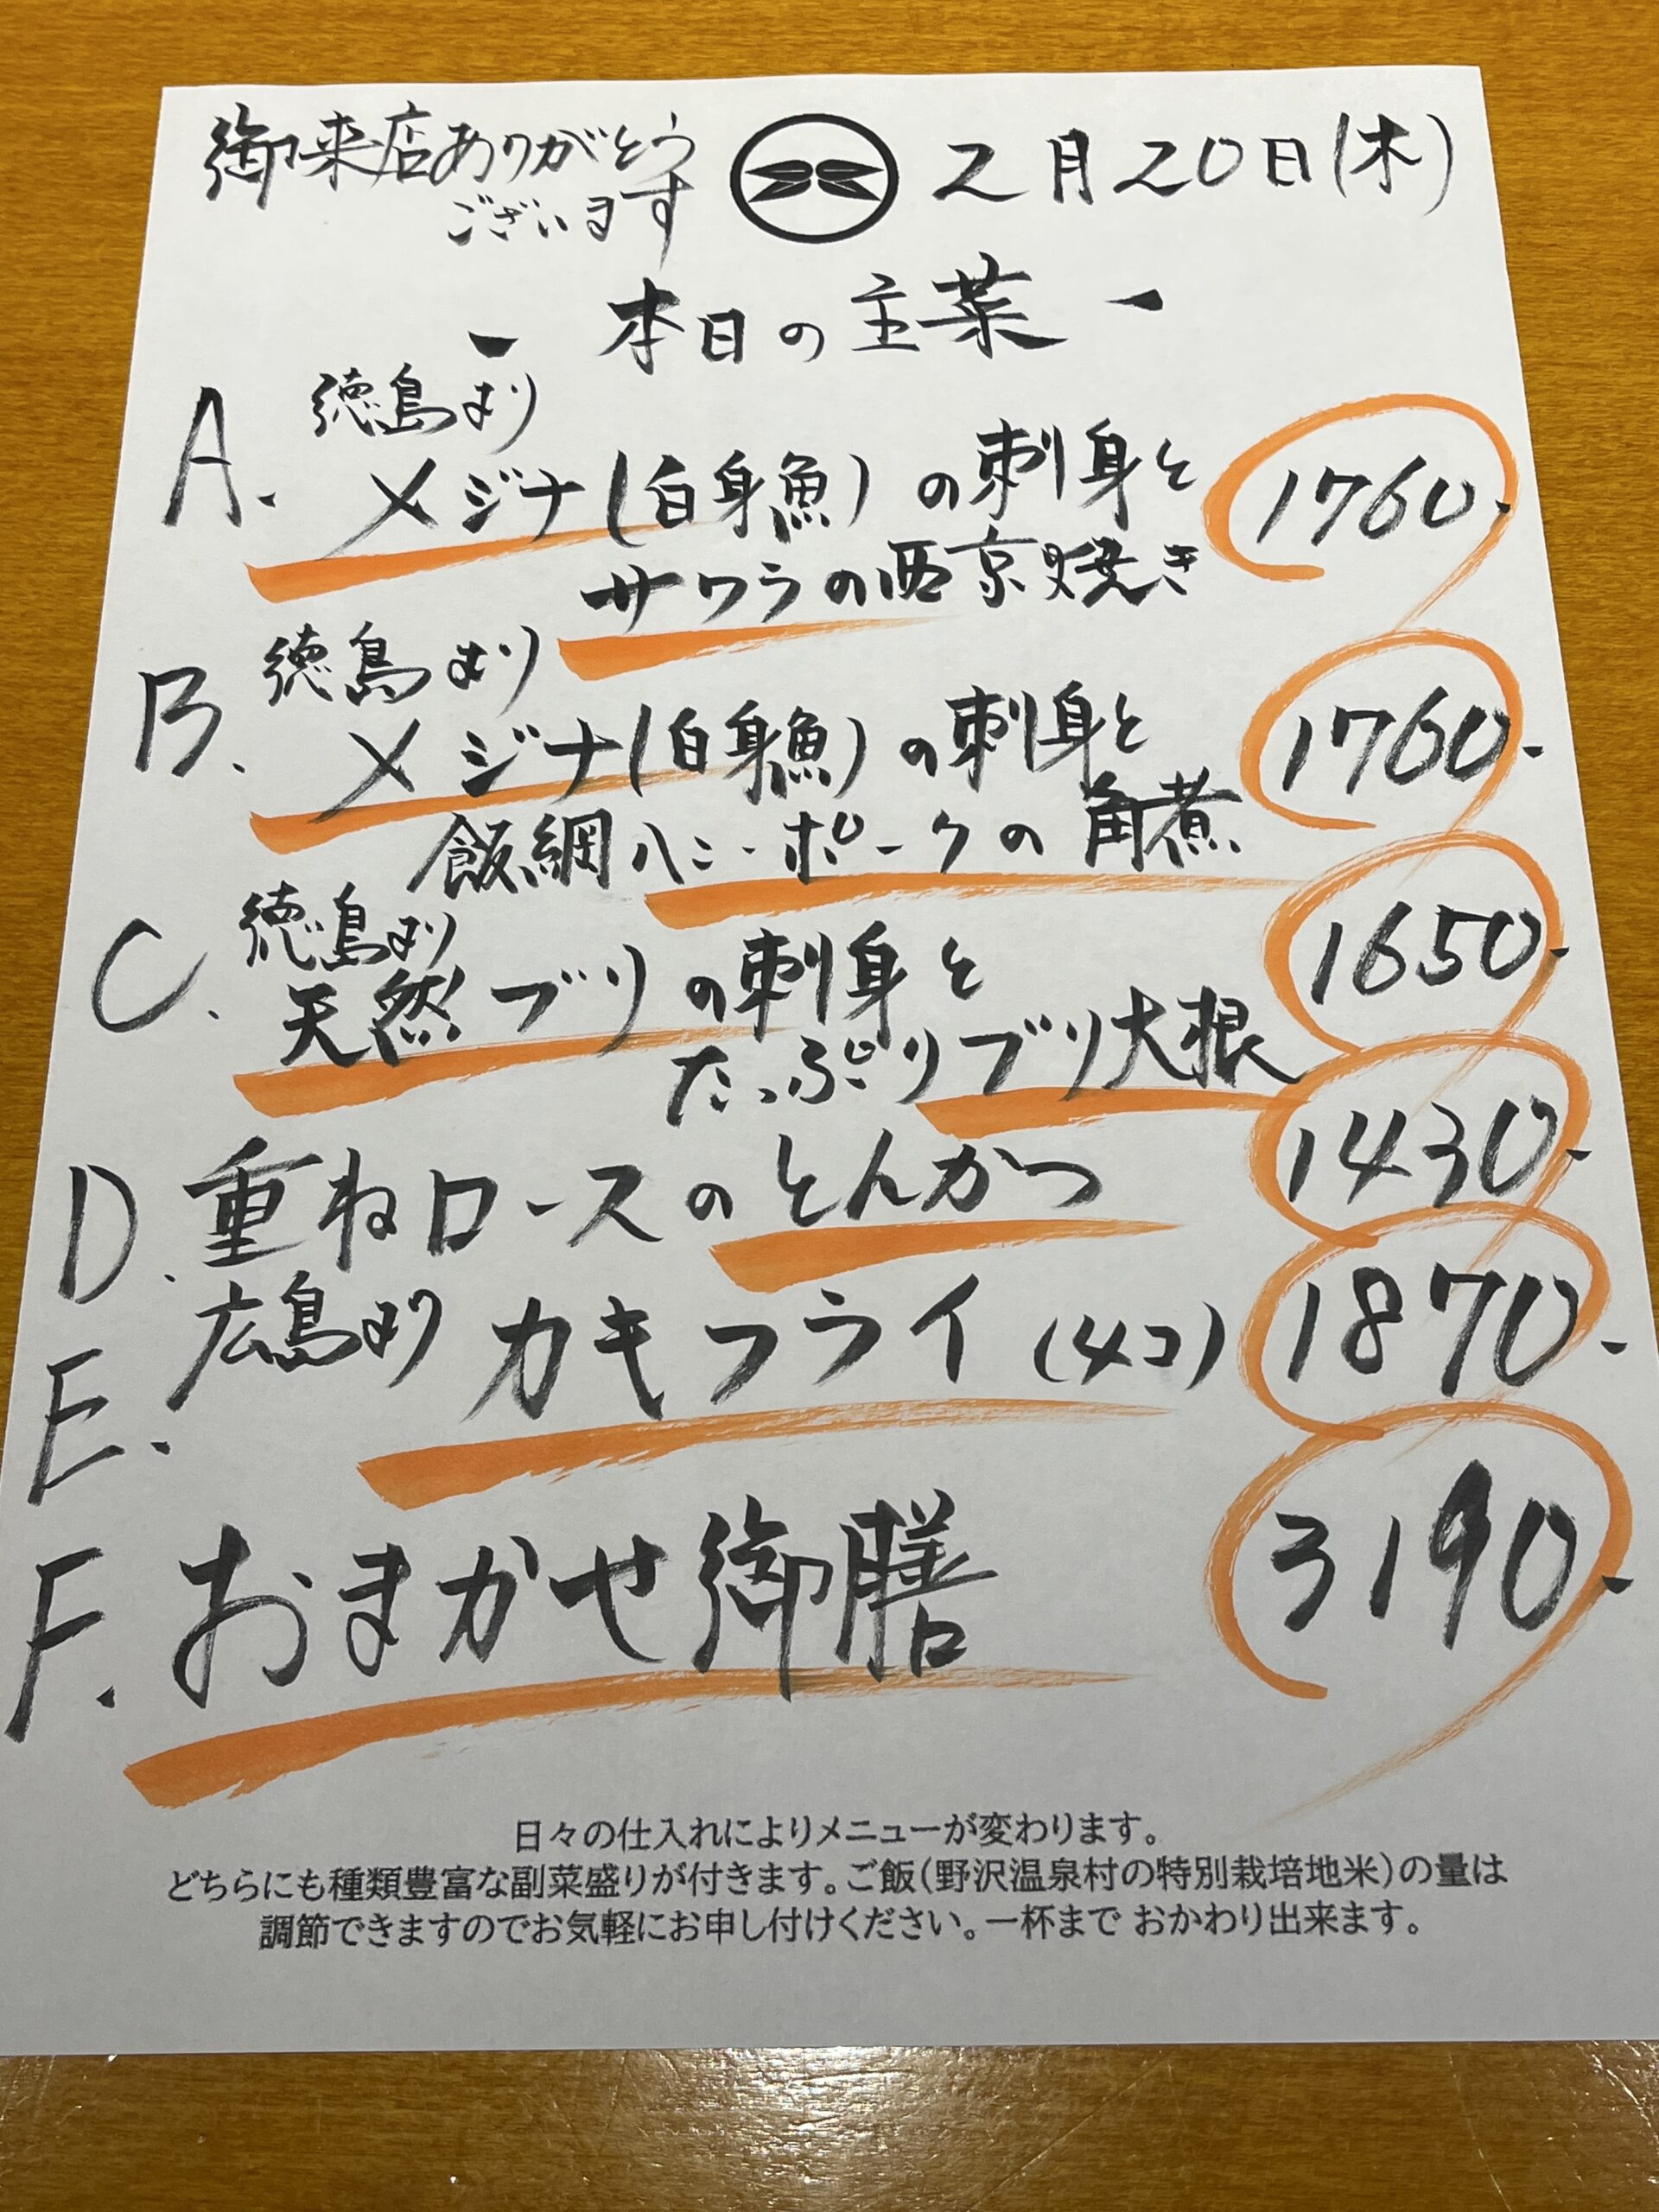 御来店ありがとう
ございます
2月20日(木)
- 本日の主菜 -
A. 徳島より
メジナ(白身魚)の刺身と
サワラの西京焼き
1760.
B. 徳島より
メジナ(白身魚)の刺身と
飯綱ハニーポークの角煮
1760.
C. 徳島より
天然ブリの刺身と
たっぷりブリ大根
1650.
D. 重ねロースのとんかつ 1430.
E. 広島より カキフライ (4コ) 1870.
F. おまかせ御膳 3190.
日々の仕入れによりメニューが変わります。
どちらにも種類豊富な副菜盛りが付きます。ご飯(野沢温泉村の特別栽培地米)の量は
調節できますのでお気軽にお申し付けください。一杯まで おかわり出来ます。